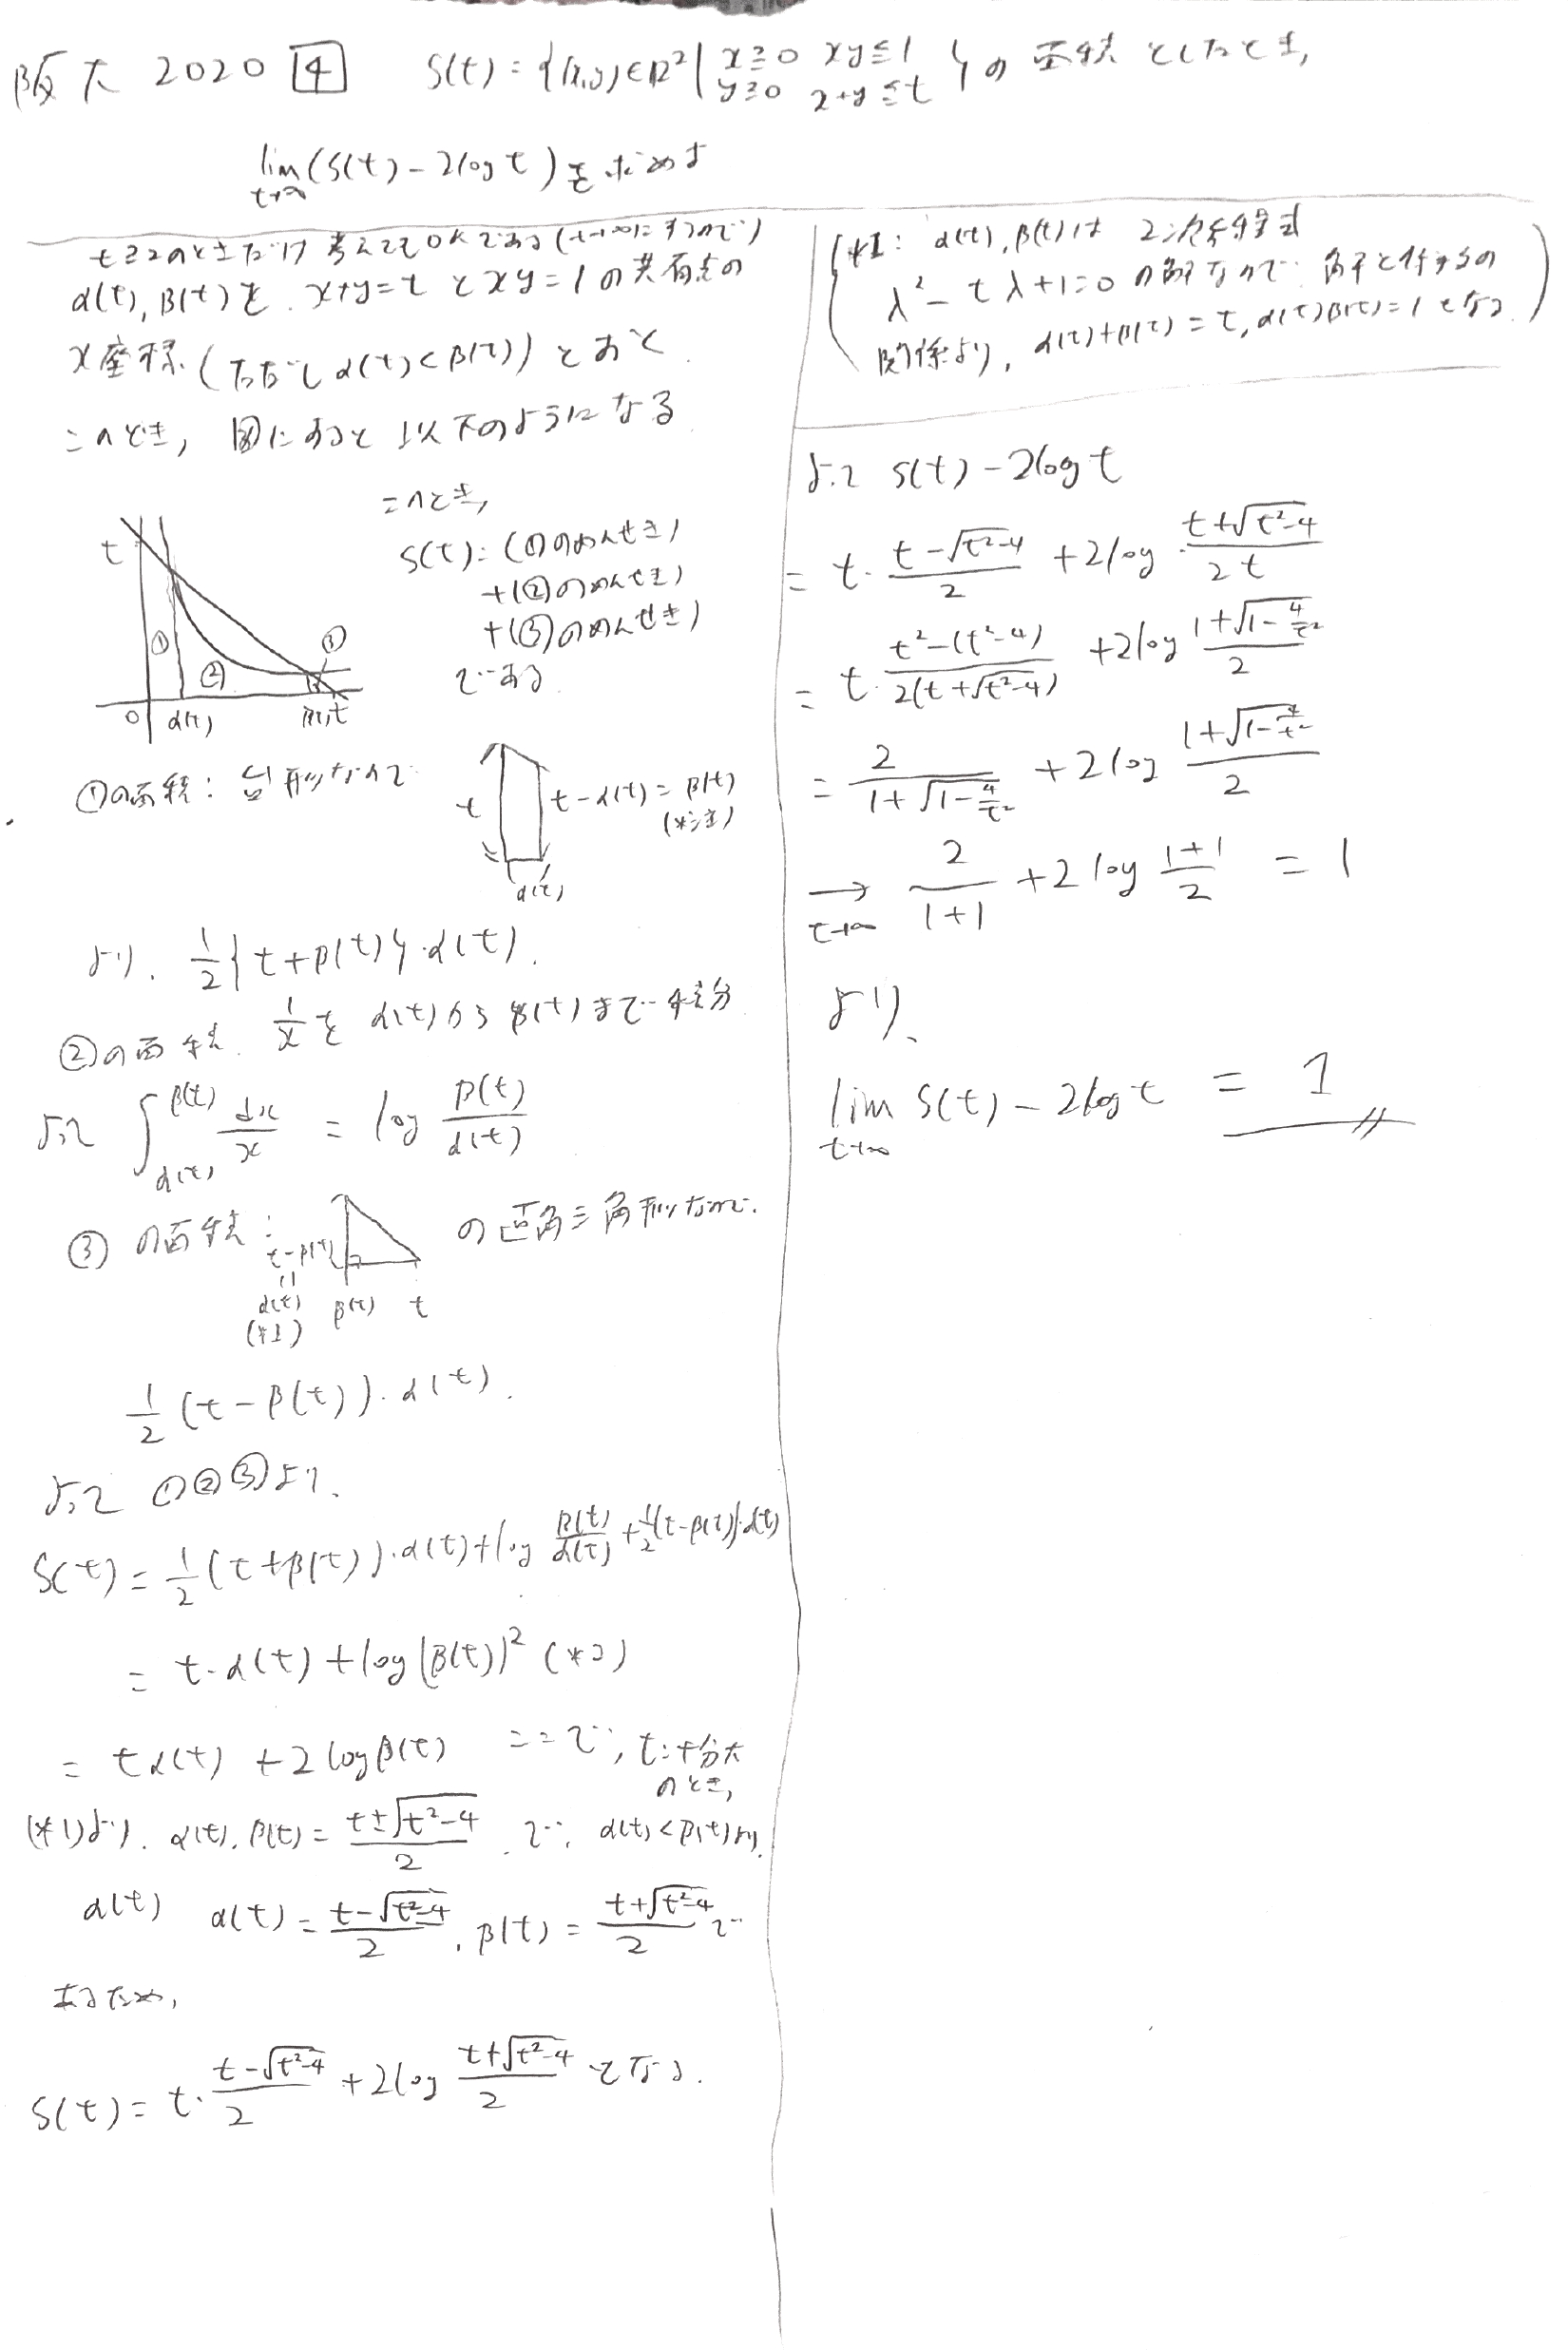 阪大 2020 4 S(t) = {(x,y)∈R²| x≧0 xy≦1 y≧0 x+y≦t }の面積としたとき,
lim t→∞ (S(t) - 2log t)を求めよ
t≧2のときだけ考えてもOKである(t→∞にするので)
α(t), β(t)を x+y=t と xy=1 の共有点の
x座標 (ただし α(t)<β(t)) とおく
このとき, 図にすると以下のようになる
t ① ② ③ O α(t) β(t) t
このとき,
S(t): (①のめんせき)
+(②のめんせき)
+(③のめんせき)
である
①の面積: 台形なので t t-α(t) = β(t) α(t)
より. 1/2{t+β(t)}・α(t).
②の面積. 1/x を α(t)から β(t)まで積分
よって ∫_{α(t)}^{β(t)} dx/x = log β(t)/α(t)
③の面積: t-β(t) = α(t) (*1) β(t) t の直角三角形なので.
1/2 (t-β(t))・α(t).
よって ①②③より.
S(t) = 1/2 (t+β(t))・α(t) + log β(t)/α(t) + 1/2(t-β(t))・α(t)
= t・α(t) + log(β(t))²
= tα(t) + 2logβ(t) ここで, t:十分大のとき,
(*1)より. α(t), β(t) = (t±√(t²-4))/2 で, α(t)<β(t)より.
α(t) α(t) = (t-√(t²-4))/2, β(t) = (t+√(t²-4))/2 で
あるため,
S(t) = t・(t-√(t²-4))/2 + 2log (t+√(t²-4))/2 となる.
(*1: α(t), β(t)は 2次方程式
λ² - tλ + 1 = 0 の解なので 解と係数の
関係より, α(t)+β(t) = t, α(t)β(t) = 1 となる.)
よって S(t) - 2log t
= t・(t-√(t²-4))/2 + 2log (t+√(t²-4))/2t
= t・(t²-(t²-4))/2(t+√(t²-4)) + 2log (1+√(1-4/t²))/2
= 2/(1+√(1-4/t²)) + 2log (1+√(1-4/t²))/2
→ t→∞ 2/(1+1) + 2log (1+1)/2 = 1
より、
lim t→∞ S(t) - 2log t = 1